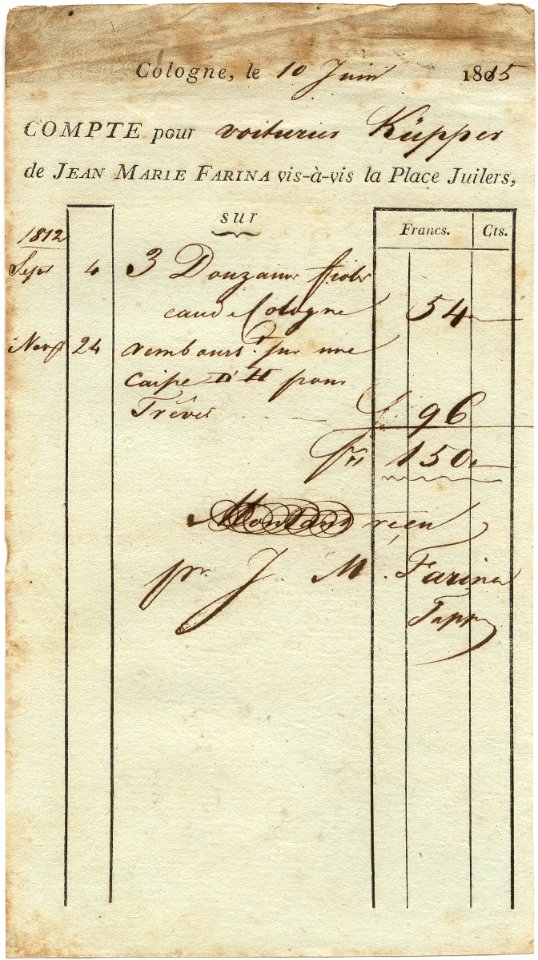 Cologne, le 10 Juin 1815
COMPTE pour voiturier Küpper
de JEAN MARIE FARINA vis-à-vis la Place Juilers,
sur
Francs. Cts.
1812
Sept 4 3 Douzaine
eau de Cologne 54
Nov 24 rembours. sur une
caisse pour
Trêves 96
frs 150
reçu
pr. J. M. Farina